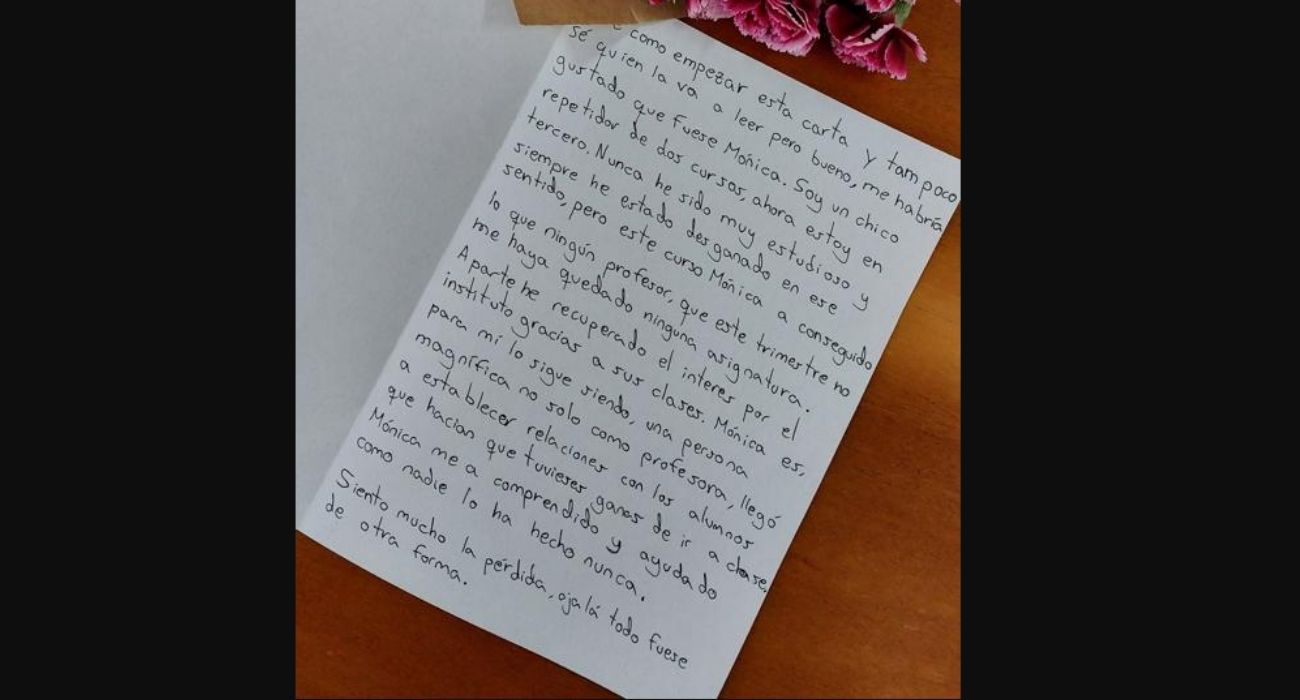 como empezar esta carta y tampoco
sé quien la va a leer pero bueno, me habría
gustado que fuese Mónica. Soy un chico
repetidor de dos cursos, ahora estoy en
tercero. Nunca he sido muy estudioso y
siempre he estado desganado en ese
sentido, pero este curso Mónica a conseguido
lo que ningún profesor, que este trimestre no
me haya quedado ninguna asignatura.
Aparte he recuperado el interes por el
instituto gracias a sus clases. Mónica es,
para mí lo sigue siendo, una persona
magnífica no solo como profesora, llegó
a establecer relaciones con los alumnos
que hacían que tuvieses ganas de ir a clase.
Mónica me a comprendido y ayudado
como nadie lo ha hecho nunca.
Siento mucho la pérdida, ojalá todo fuese
de otra forma.